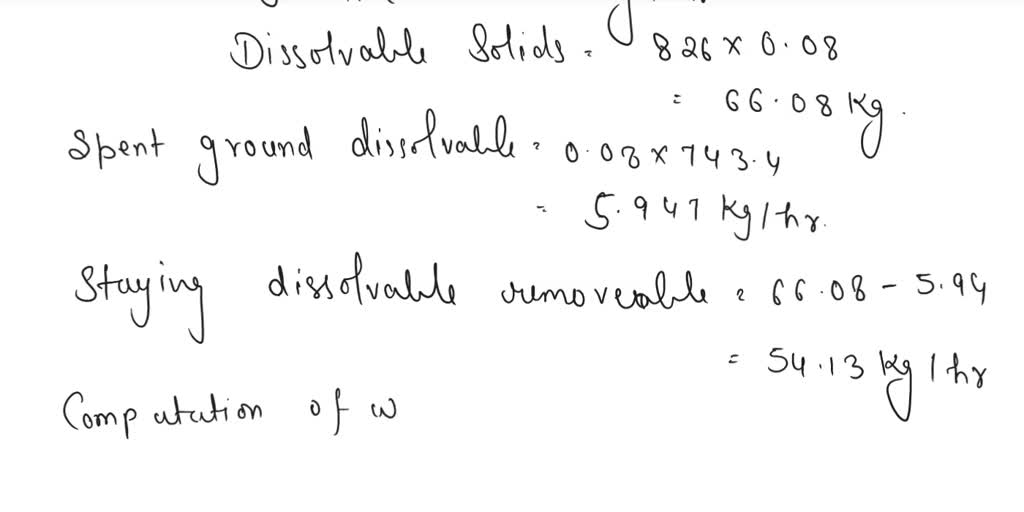 Dissolvable Solids = 826 x 0.08
= 66.08 Kg.
Spent ground dissolvable = 0.08 x 743.4
= 5.947 Kg/hr.
Staying dissolvable removeable = 66.08 - 5.94
= 54.13 Kg/hr
Computation of w